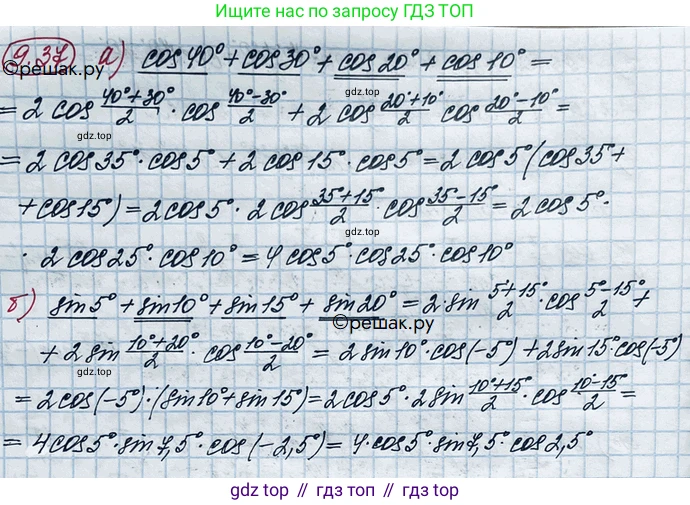 Ищите нас по запросу ГДЗ ТОП
9.37 а) cos 40° + cos 30° + cos 20° + cos 10° =
©решак.ру
gdz.top
= 2 cos (40°+30°)/2 · cos (40°-30°)/2 + 2 cos (20°+10°)/2 cos (20°-10°)/2 =
gdz.top gdz.top
= 2 cos 35° · cos 5° + 2 cos 15° · cos 5° = 2 cos 5° (cos 35 +
+ cos 15°) = 2 cos 5° · 2 cos (35°+15°)/2 · cos (35-15°)/2 = 2 cos 5° ·
· 2 cos 25° · cos 10° = 4 cos 5° · cos 25° · cos 10°
gdz.top
б) sin 5° + sin 10° + sin 15° + sin 20° = 2 · sin (5°+15°)/2 · cos (5°-15°)/2 +
©решак.ру
+ 2 sin (10°+20°)/2 · cos (10°-20°)/2 = 2 sin 10° · cos(-5°) + 2 sin 15° · cos(-5°)
= 2 cos(-5°) · (sin 10° + sin 15°) = 2 cos 5° · 2 sin (10°+15°)/2 · cos (10°-15°)/2 =
= 4 cos 5° · sin 7,5° · cos(-2,5°) = 4 · cos 5° · sin 7,5° cos 2,5°
gdz top // гдз топ // gdz.top